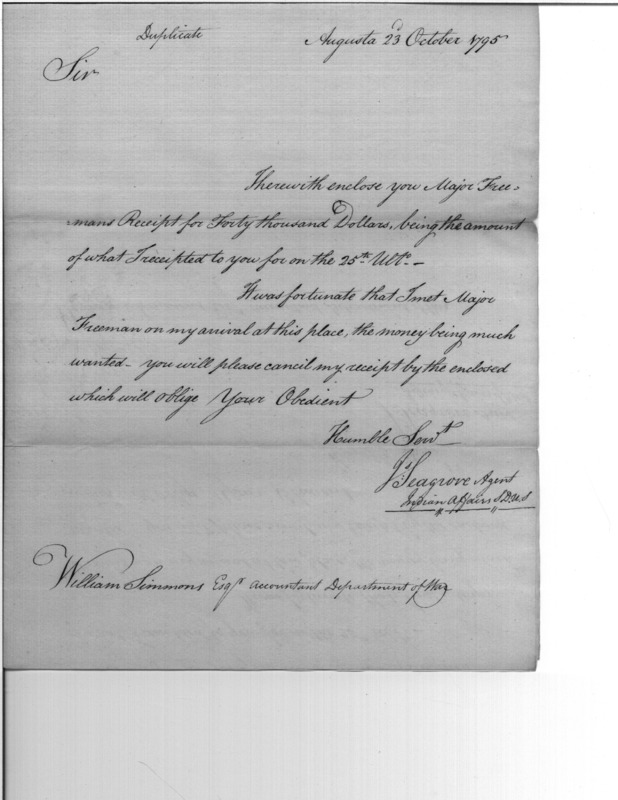 Duplicate
Augusta 23d October 1795
Sir
I herewith enclose you Major Free=
=mans Receipt for Forty thousand Dollars, being the amount
of what I receipted to you for on the 25th Ulto –
It was fortunate that I met Major
Freeman on my arrival at this place, the money being much
wanted – you will please cancil my receipt by the enclosed
which will oblige Your Obedient
Humble Servt
Js Seagrove Agent
Indian Affairs S.D.U.S
William Simmons Esqr accountant Department of War